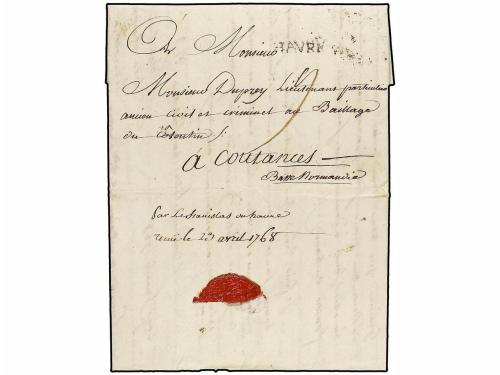 A Monsieur
HAVRE
Monsieur Duprey Lieutenant particulier
ancien civil et criminel au Baillage
du Cotentin
a Coutances
Basse Normandie
par Le Stanislas du havre
avril 1768